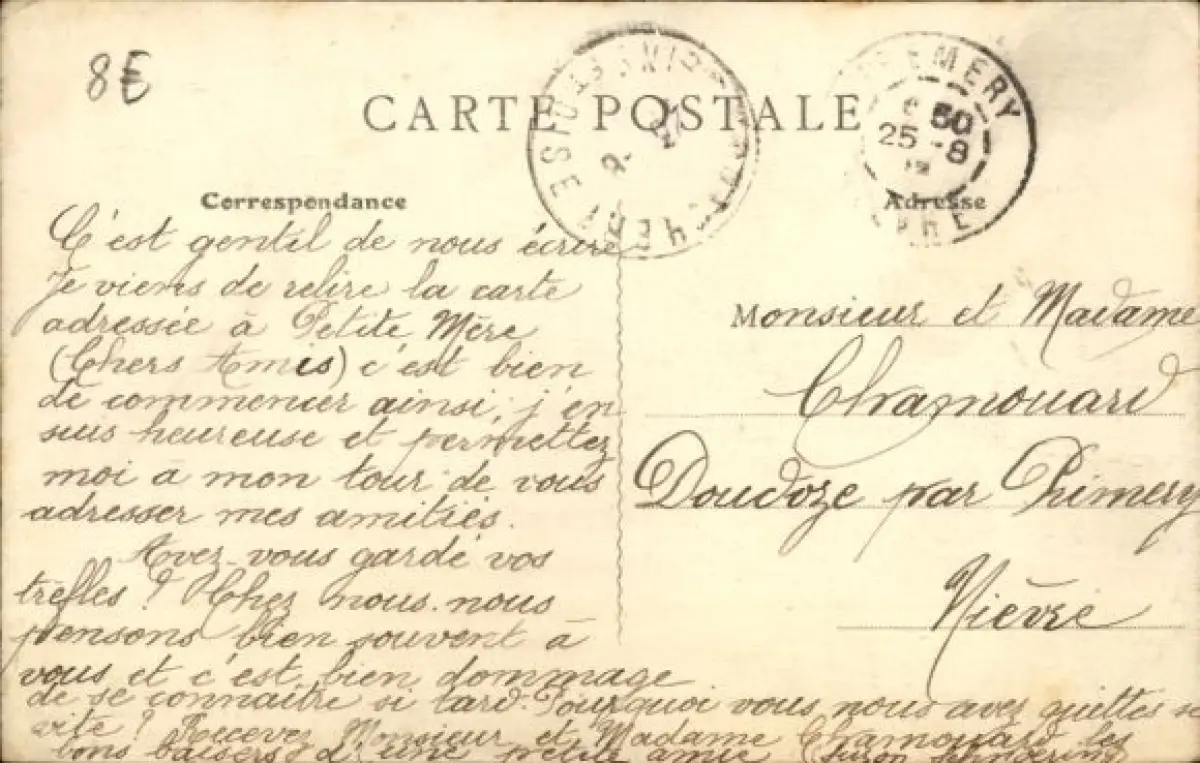 8€
CARTE POSTALE
PREMERY
50
25-8
Correspondance
Adresse
C'est gentil de nous écrire
Je viens de relire la carte
adressée à Petite Mère
(Chers Amis) c'est bien
de commencer ainsi, j'en
suis heureuse et permettez
moi a mon tour de vous
adresser mes amitiés.
Avez-vous gardé vos
trèfles ? Chez nous nous
pensons bien souvent à
vous et c'est bien dommage
de se connaître si tard. Pourquoi vous nous avez quittés si
vite ? Recevez Monsieur et Madame Chamouard les
bons baisers d'une petite amie Suzon
Monsieur et Madame
Chamouard
Doudoze par Prémery
Nièvre